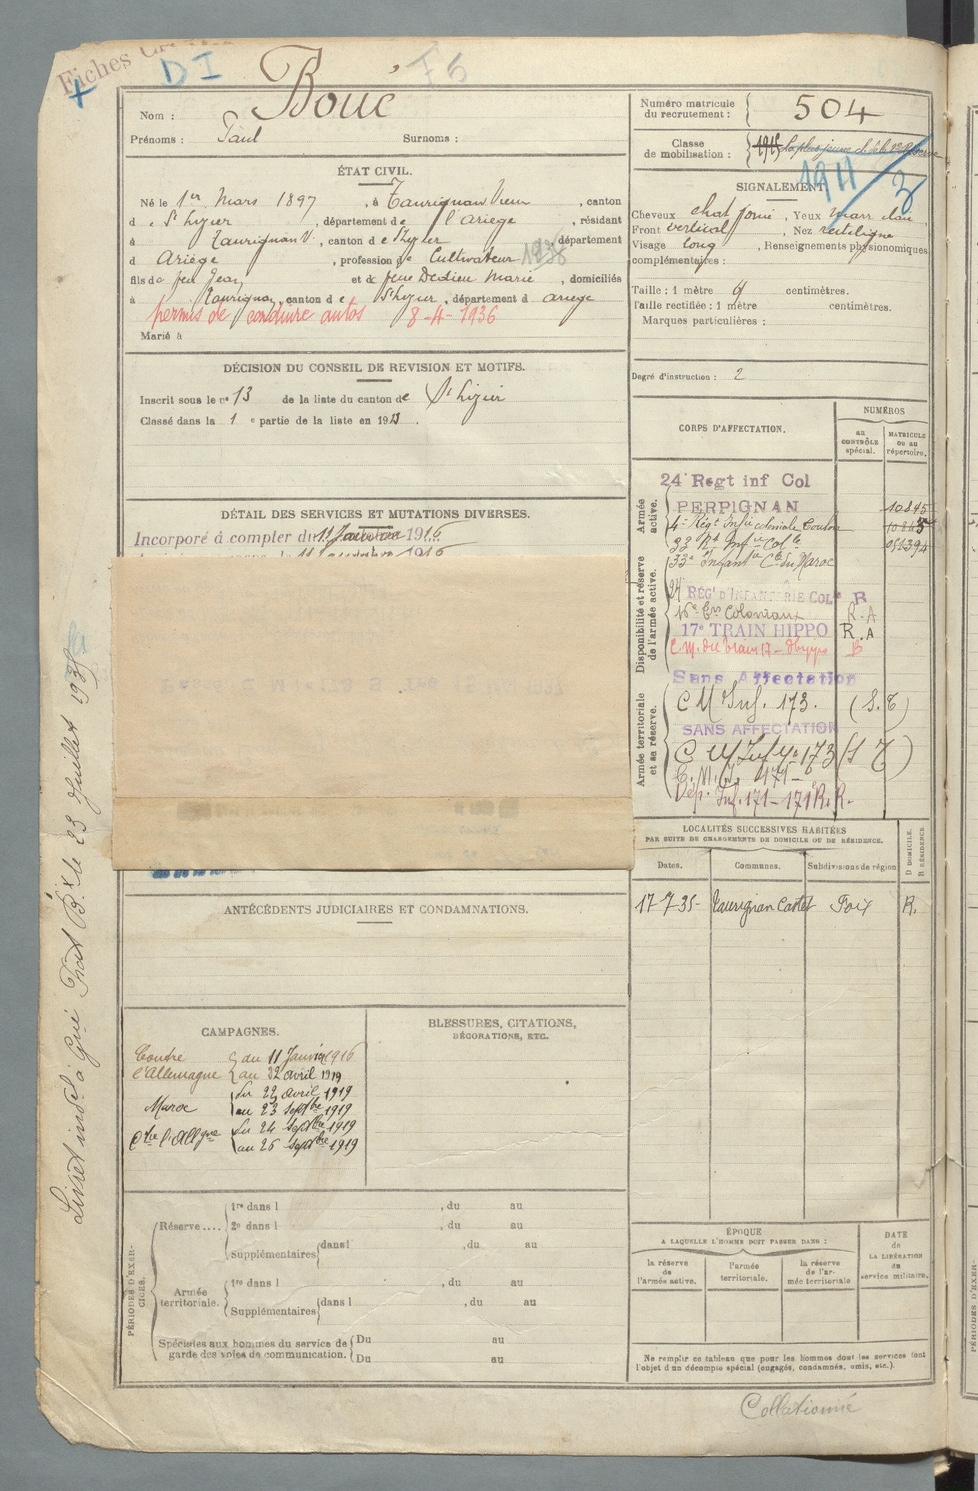 Fiches
D I
F5
Nom : Boué
Prénoms : Paul Surnoms :
Numéro matricule du recrutement : 504
Classe de mobilisation : 1915 La plus jeune cl. de la 2e Réserve
1911
ÉTAT CIVIL.
Né le 1er Mars 1897, à Taurignan Vieux, canton
d e St Lizier, département de l'Ariège, résidant
à Taurignan V., canton d e St Lizier, département
d Ariège, profession de Cultivateur 1936
fils de feu Jean et de feue Dedieu Marie, domiciliés
à Taurignan, canton d e St Lizier, département d Ariège
permis de conduire autos 8-4-1936
Marié à
SIGNALEMENT
Cheveux chat foncé, Yeux marr clair
Front vertical, Nez rectiligne
Visage long, Renseignements physionomiques
complémentaires :
Taille : 1 mètre centimètres.
Taille rectifiée : 1 mètre centimètres.
Marques particulières :
Degré d'instruction : 2
DÉCISION DU CONSEIL DE REVISION ET MOTIFS.
Inscrit sous le no 13 de la liste du canton de St Lizier
Classé dans la 1 e partie de la liste en 19
DÉTAIL DES SERVICES ET MUTATIONS DIVERSES.
Incorporé à compter du 11 Janvier 1916
CORPS D'AFFECTATION.
NUMÉROS
au CONTRÔLE spécial.
MATRICULE ou au répertoire.
Armée active.
24e Regt inf Col
PERPIGNAN 10845
4e Régt Infie coloniale Toulon 10845
33 Rt Infie Colle
33e Infantie Cle du Maroc
Disponibilité et réserve de l'armée active.
24 RÉGt D'INFANTERIE COLe R
16e Eon Coloniaux R.A
17e TRAIN HIPPO R.A
C.M. du train 17 - Hippo B
Armée territoriale et sa réserve.
Sans Affectation
C M Inf. 173. (S.T)
SANS AFFECTATION
C M Inf No 173 (S T)
C.M.I. 171-
Dép. Inf. 171 - 171 R.R.
LOCALITÉS SUCCESSIVES HABITÉES
PAR SUITE DE CHANGEMENTS DE DOMICILE OU DE RÉSIDENCE.
Dates. Communes. Subdivisions de région D DOMICILE. R RÉSIDENCE.
17-7-35- Taurignan Castet Foix R.
ANTÉCÉDENTS JUDICIAIRES ET CONDAMNATIONS.
CAMPAGNES.
Contre du 11 Janvier 1916
l'Allemagne au avril 1919
Maroc du 22 avril 1919
au 23 Septbre 1919
Ctre l'Allgne du 24 Septbre 1919
au 26 Septbre 1919
BLESSURES, CITATIONS,
DÉCORATIONS, ETC.
PÉRIODES D'EXERCICES.
Réserve .... 1re dans l , du au
2e dans l , du au
Supplémentaires dans l , du au
Armée territoriale. 1re dans l , du au
Supplémentaires dans l , du au
Spéciales aux hommes du service de garde des voies de communication. Du au
Du au
ÉPOQUE
A LAQUELLE L'HOMME DOIT PASSER DANS :
la réserve de l'armée active.
l'armée territoriale.
la réserve de l'armée territoriale
DATE de LA LIBÉRATION du service militaire.
Ne remplir ce tableau que pour les hommes dont les services font
l'objet d'un décompte spécial (engagés, condamnés, omis, etc.).
Collationné
Livret indel à Gné Prat Bx le 23 Juillet 1935
PÉRIODES D'EXER-